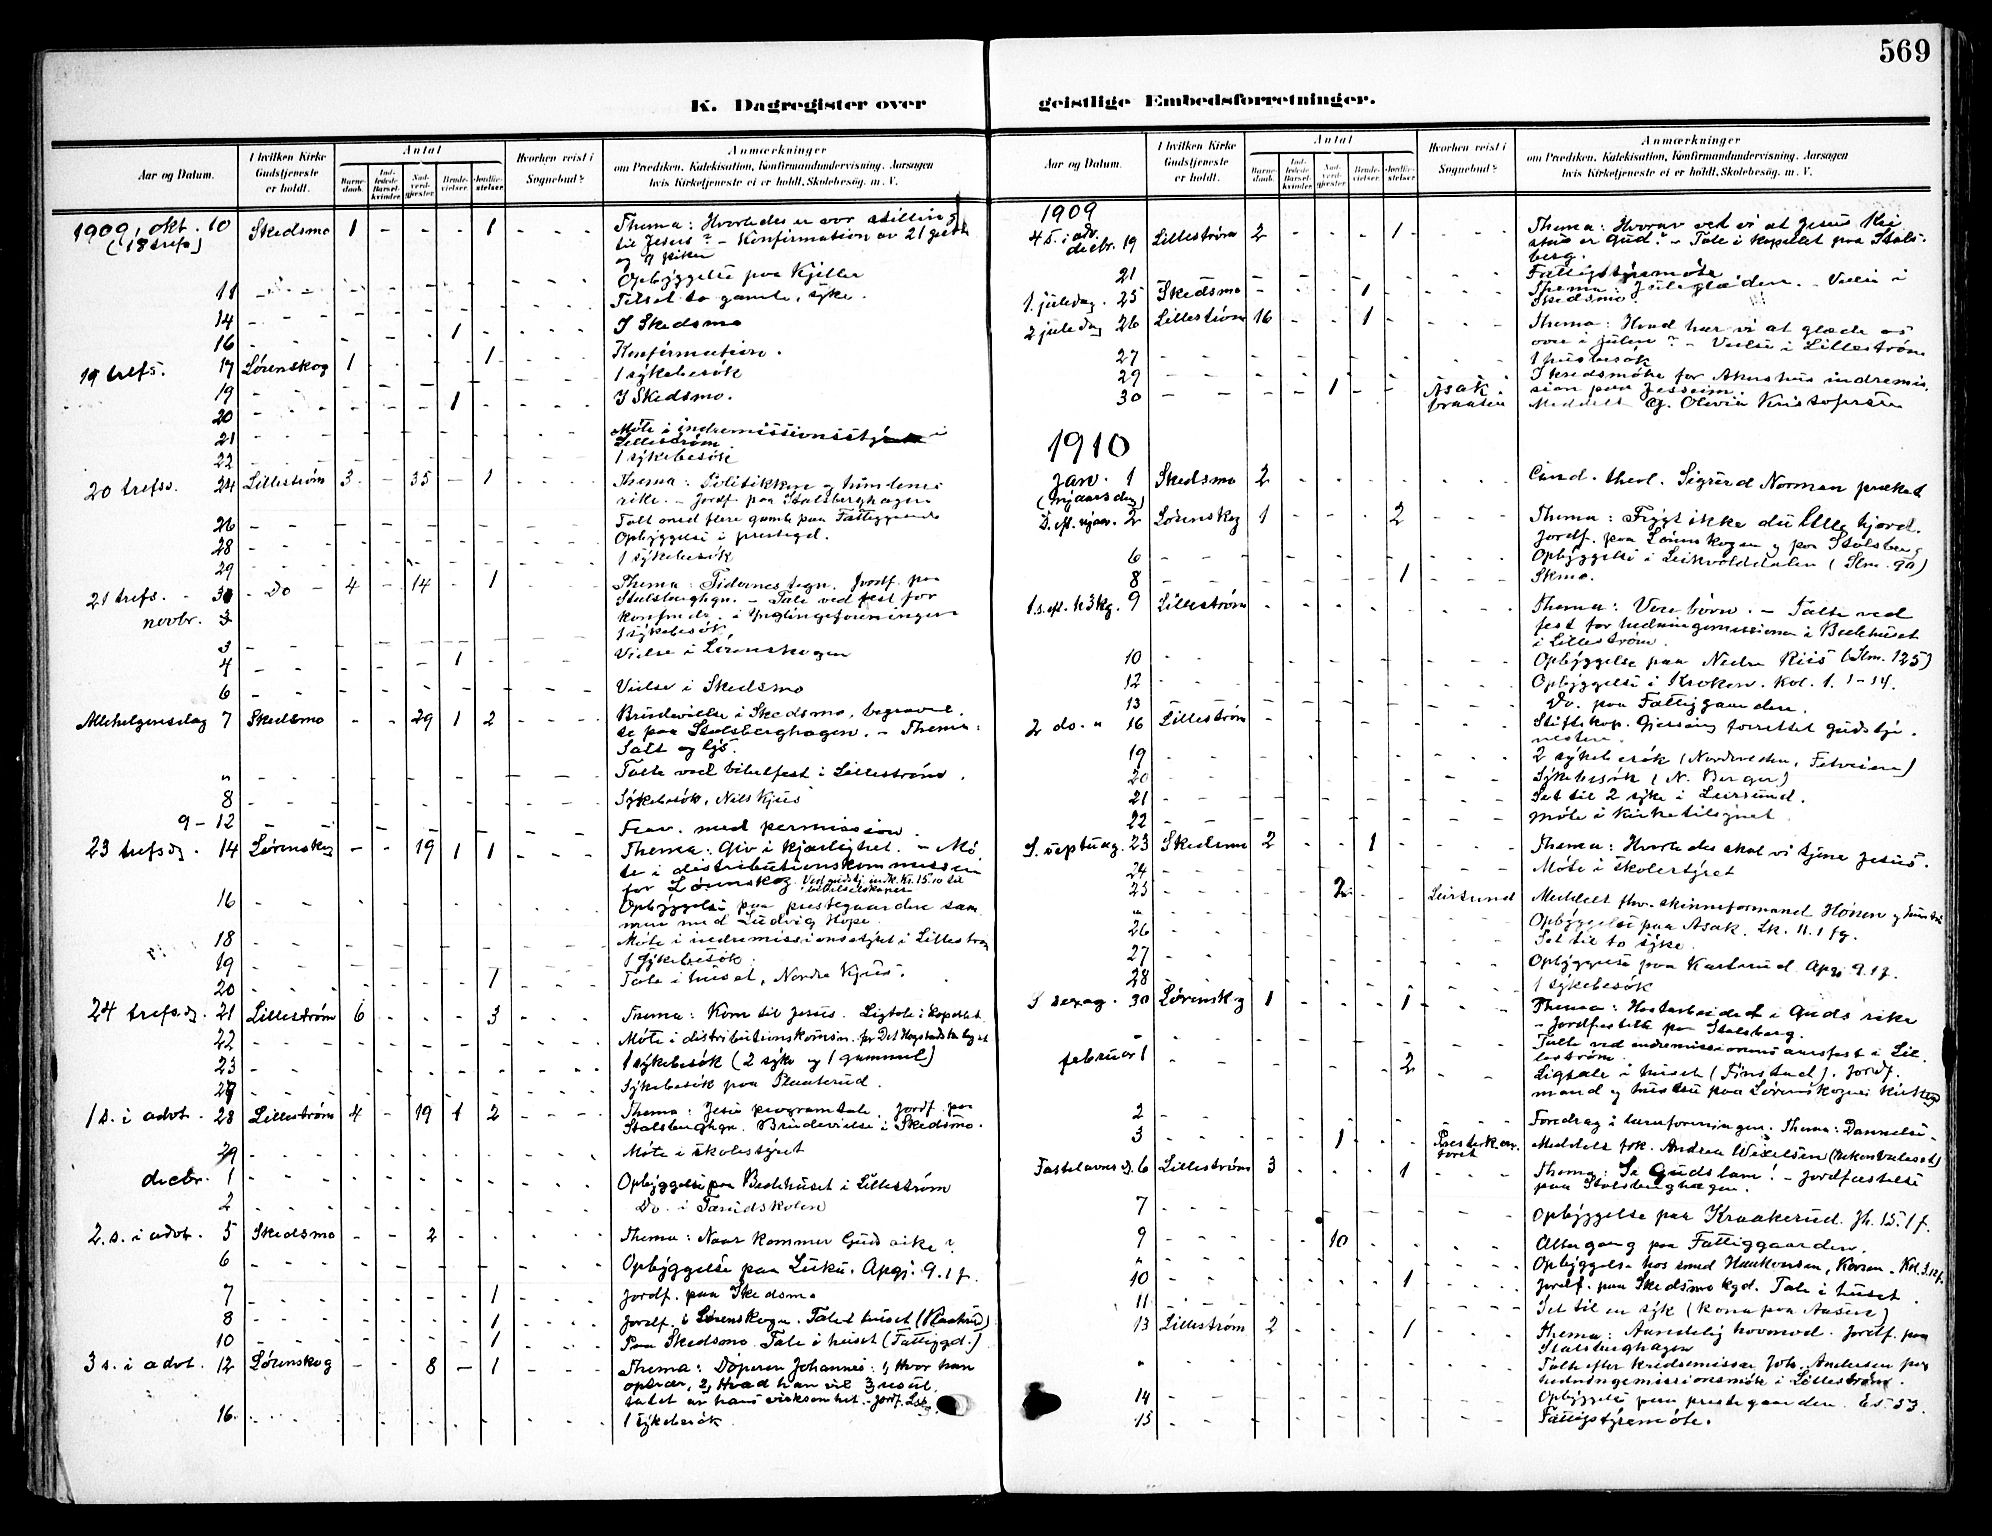 569
K. Dagregister over geistlige Embedsforretninger.
Aar og Datum. I hvilken Kirke Gudstjeneste er holdt. Antal Barnedaab. Indledede Barselkvinder Nadverdgjester Brudevielser Jordfæstelser Hvorhen reist i Sognebud? Anmærkninger om Prædiken, Katekisation, Konfirmandundervisning, Aarsagen hvis Kirketjeneste ei er holdt, Skolebesøg, m. V.
1909, okt. 10 Skedsmo 1 - - - 1 Thema: Hvorledes er vor stilling
(18 trefs) til Jesus? - Konfirmation av 21 gutter
og 9 piker
11 Opbyggelse paa Kjeller
14 Tilset to gamle, syke.
16 1 I Skedsmo
19 trefs. 17 Lørenskog 1 1 Konfirmation.
19 1 sykebesøk
20 1 I Skedsmo.
21 Møte i indremissionsstyret i
Lillestrøm
22 1 sykebesøk
20 trefs. 24 Lillestrøm 3 - 35 - 1 Thema: Politikken og himlenes
rike. - Jordf. paa Stalsberghagen
26 Talt med flere gamle paa Fattiggaarden
28 Opbyggelse i prestegd.
29 1 sykebesøk
21 trefs. - 31 - Do - 4 - 14 - 1 Thema: Tidernes tegn. Jordf. paa
Stalsberghgn. - Tale ved fest for
novbr. 2 konfirmde. i Ynglingeforeningen
3 1 sykebesøk
4 1 Vielse i Lørenskogen
6 Vielse i Skedsmo
Allehelgensdag 7 Skedsmo - - 29 1 2 Brudevielse i Skedsmo, begravel-
se paa Stalsberghagen. - Thema:
Salt og lys.
" Talte ved bibelfest i Lillestrøm.
8 Sykebesøk, Nils Kjus
9 - 12 Frav. med permission.
23 trefsdg. 14 Lørenskog - - 19 1 1 Thema: Giv i kjærlighet. - Mø-
te i distributionskommissen
for Lørenskog. Ved gudstj. indk. Kr. 15.10 til bibelselskapet
16 Opbyggelse paa prestegaarden sam-
men med Ludvig Hope.
18 Møte i indremissionsstyret i Lillestrøm
19 1 sykebesøk.
20 1 Tale i huset, Nordre Kjus.
24 trefsdg. 21 Lillestrøm 6 - - - 3 Thema: Kom til Jesus. Ligtale i kapellet.
22 Møte i distributionskomsn.
23 1 sykebesøk (2 syke og 1 gammel)
Sykebesøk paa Plaaterud.
1 s. i advt. 28 Lillestrøm 4 - 19 1 2 Thema: Jesu programtale. Jordf. paa
Stalsberghgn. Brudevielse i Skedsmo.
29 Møte i skolestyret
decbr. 1 Opbyggelse paa Bedehuset i Lillestrøm
2 Do. i Tærudskolen
2. s. i advt. 5 Skedsmo - - 2 Thema: Naar kommer Guds rike?
6 Opbyggelse paa Luku. Apgj. 9.1 f.
7 1 Jordf. paa Skedsmo
8 1 Jordf. i Lørenskogn. Tale i huset (Plaaterud)
10 1 Paa Skedsmo. Tale i huset (Fattiggd.)
3 s. i advt. 12 Lørenskog - - 8 - 1 Thema: Døperen Johannes: 1, Hvor han
optrær, 2, Hvad han vil 3 resul-
tatet av hans virksomhet. - Jordf.
16. 1 sykebesøk.
Aar og Datum. I hvilken Kirke Gudstjeneste er holdt. Antal Barnedaab. Indledede Barselkvinder Nadverdgjester Brudevielser Jordfæstelser Hvorhen reist i Sognebud? Anmærkninger om Prædiken, Katekisation, Konfirmandundervisning, Aarsagen hvis Kirketjeneste ei er holdt, Skolebesøg, m. V.
1909
4 s. i adv. decbr. 19 Lillestrøm 2 - - - 1 Thema: Hvorav ved vi at Jesus Kri-
stus er Gud? - Tale i kapellet paa Stals-
berg.
21 Fattigstyremøte
1 juledag. 25 Skedsmo - - - 1 Thema: Juleglæden. - Vielse i
Skedsmo
2 juledag 26 Lillestrøm 16 - - 1 Thema: Hvad har vi at glæde os
over i julen? - Vielse i Lillestrøm
27 1 husbesøk
29 Kredsmøte for Akershus indremis-
sion paa Jessheim.
30 1 Asak braaten Meddelt Olivia Kristofersen
1910
Jan. 1 Skedsmo 2 Cand. theol. Sigurd Norman præket
(nyaarsdag)
S. eft. nyaar. 2 Lørenskog 1 - - - 2 Thema: Frygt ikke du lille hjord.
Jordf. paa Lørenskogen og paa Stalsberg
6 Opbyggelse i Leikvolddalen (Slm. 90)
8 1 Skmo.
1 s. eft. h3kg. 9 Lillestrøm Thema: Vore børn. - Talte ved
fest for hedningemissionen i Bedehuset
i Lillestrøm.
10 Opbyggelse paa Nedre Riis (Slm. 125)
12 Opbyggelse i Kroken. Kol. 1. 1-14.
13 Do. paa Fattiggaarden.
2 do. " 16 Lillestrøm Stiftskap. Gjersøng forrettet gudstje-
nesten.
19 2 sykebesøk (Nordveden, Fetveien)
20 Sykebesøk (N. Berger)
21 Set til 2 syke i Leirsund.
22 møte i kirketilsynet
S. septuag. 23 Skedsmo 2 - - 1 Thema: Hvorledes skal vi tjene Jesus.
24 Møte i skolestyret
25 2 Leirsund Meddelt fhv. skinneformand Hønen og hustru
" Opbyggelse paa Asak. Lk. 11.1 fg.
26 Set til to syke.
27 Opbyggelse paa Karterud. Apgj. 9.1 f.
28 1 sykebesøk
S sexag. 30 Lørenskog 1 - - - 1 Thema: Høstarbeidet i Guds rike
- Jordfæstelse paa Stalsberg.
" Talte ved indremissionens aarsfest i Lil-
lestrøm.
februar 1 2 Ligtale i huset (Finstad). Jordf.
mand og hustru paa Lørenskogens kirkegd
2 Foredrag i turnforeningen. Thema: Dannelse.
3 1 Meddelt frk. Andrea Wexelsen
Fastelavns s. 6 Lillestrøm 3 - - - 1 Thema: Se Guds lam! - Jordfæstelse
paa Stalsberghagen.
7 Opbyggelse paa Kraakerud. Jh. 15.1 f.
9 10 Altergang paa Fattiggaarden.
" Opbyggelse hos smed Haakonsen,
10 1 Jordf. paa Skedsmo kgd. Tale i huset.
11 Set til en syk (kona paa Aasen)
13 Lillestrøm 2 - - - 1 Thema: Aandelig hovmod. Jordf. paa
Stalsberghagen
" Talte efter kredsmissær Joh. Andersen paa
hedningemissionsmøte i Lillestrøm.
14 Opbyggelse paa prestegaarden. Es 53.
15 Fattigstyremøte.